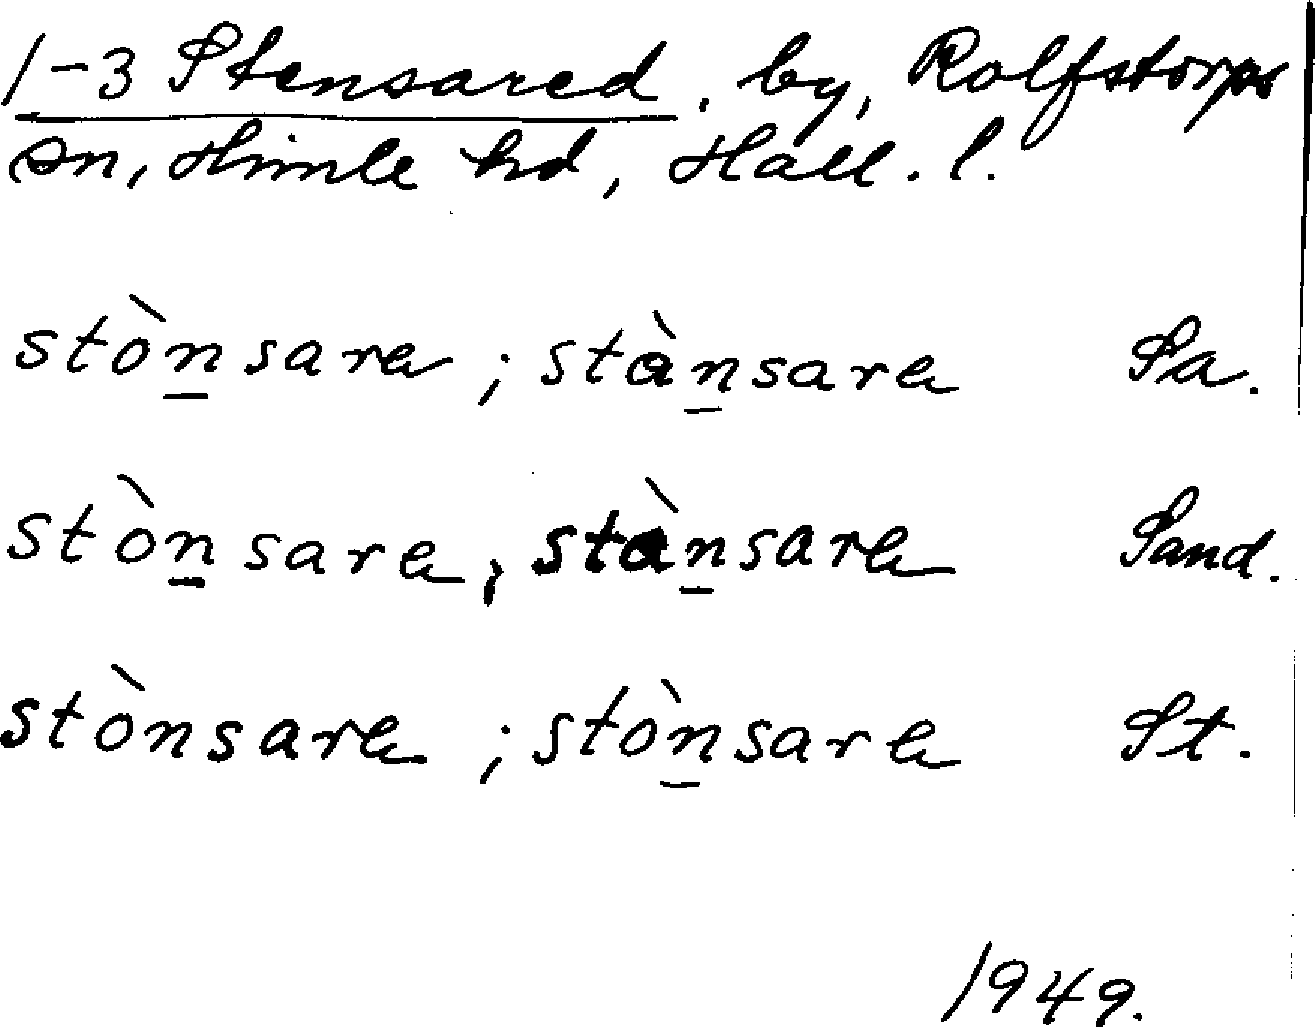 1-3 Stensared. by, Rolfstorps
sn, Himle hd, Hall. l.
stòn̲sare ; stàn̲sare Sa.
stòn̲sare, stàn̲sare Sand.
stònsare ; stòn̲sare St.
1949.